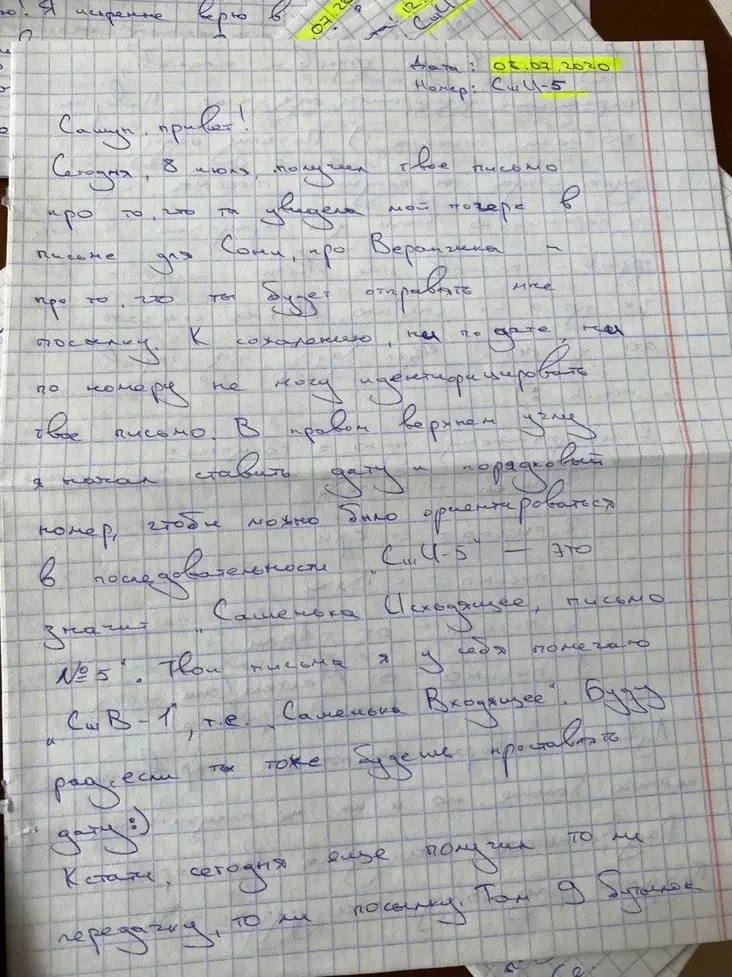 Я искренне верю в
Дата: 08.07.2020
Номер: СшИ-5
Сашуп, привет!
Сегодня, 8 июля, получил твое письмо
про то, что ты увидела мой почерк в
письме для Сони, про Веранчика –
про то, что ты будет отправлять мне
посылку. К сожалению, ни по дате, ни
по номеру не могу идентифицировать
твое письмо. В правом верхнем углу
я начал ставить дату и порядковый
номер, чтобы можно было ориентироваться
в последовательности „СшИ-5" — это
значит „Сашенька Исходящее, письмо
№5". Твои письма я у себя помечаю
„СшВ-1", т.е. „Сашенька Входящее". Буду
рад, если ты тоже будешь проставлять
дату:)
Кстати, сегодня еще получил то ли
передачку, то ли посылку. Там 9 бутылок